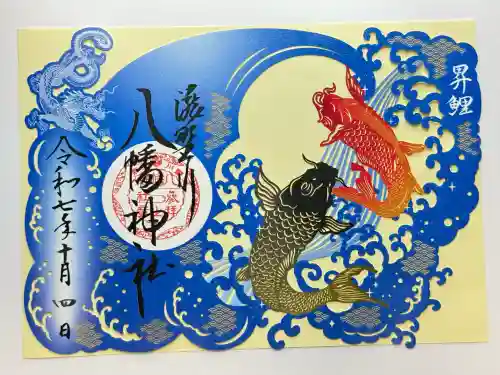 昇鯉
滝野川
八幡神社
令和七年十月四日